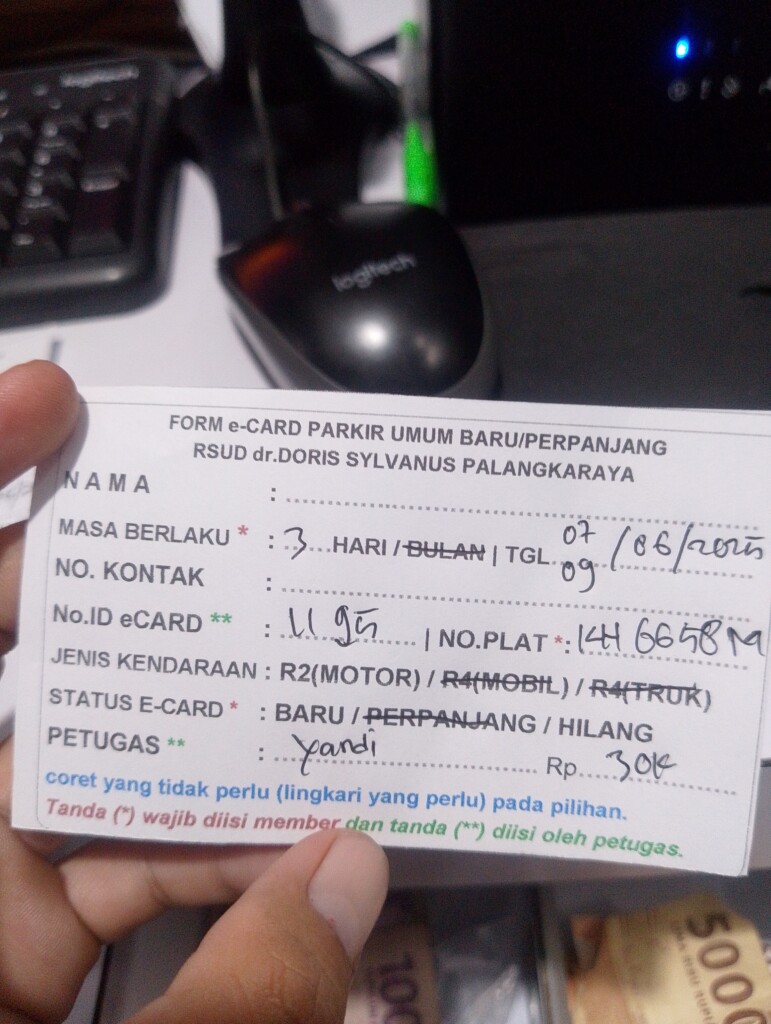 logitech
logitech
FORM e-CARD PARKIR UMUM BARU/PERPANJANG
RSUD dr.DORIS SYLVANUS PALANGKARAYA
N A M A :
MASA BERLAKU * : 3 HARI / BULAN | TGL 07 /06/2025
09
NO. KONTAK :
No.ID eCARD ** : 1195 | NO.PLAT *: KH 6658 M
JENIS KENDARAAN : R2(MOTOR) / R4(MOBIL) / R4(TRUK)
STATUS E-CARD * : BARU / PERPANJANG / HILANG
PETUGAS ** : Yandi Rp 30K
coret yang tidak perlu (lingkari yang perlu) pada pilihan.
Tanda (*) wajib diisi member dan tanda (**) diisi oleh petugas.
100
5000